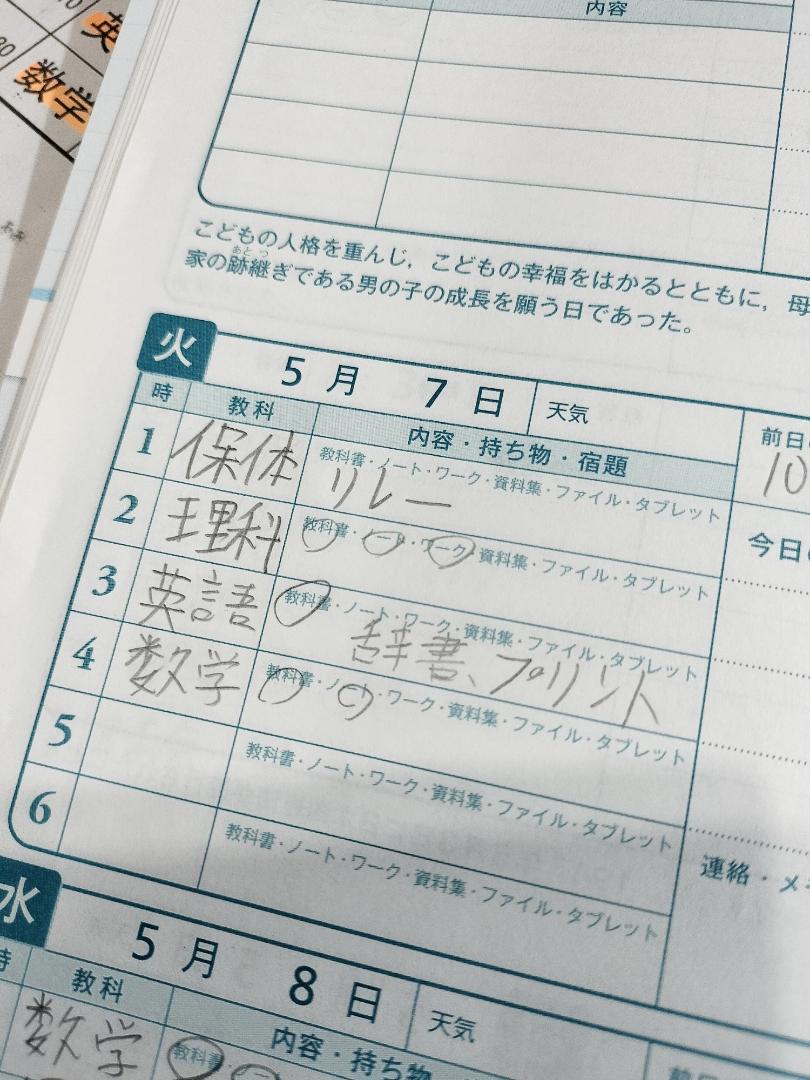 英
数学
内容
こどもの人格を重んじ，こどもの幸福をはかるとともに，母
家の跡継ぎである男の子の成長を願う日であった。
あとつ
火 5月 7日 天気
時 教科 内容・持ち物・宿題 前日
1 保体 教科書・ノート・ワーク・資料集・ファイル・タブレット 10
リレー
2 理科 教科書・ノート・ワーク・資料集・ファイル・タブレット 今日
3 英語 教科書・ノート・ワーク・資料集・ファイル・タブレット
辞書、プリント
4 数学 教科書・ノート・ワーク・資料集・ファイル・タブレット
5 教科書・ノート・ワーク・資料集・ファイル・タブレット
6 教科書・ノート・ワーク・資料集・ファイル・タブレット
連絡・メ
水 5月 8日 天気
時 教科 内容・持ち物
数学 教科書・ノー